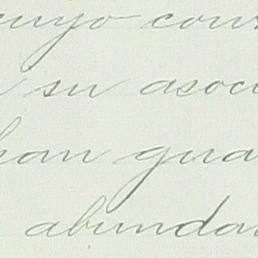 cuyo con
su asoc
han gua
abunda